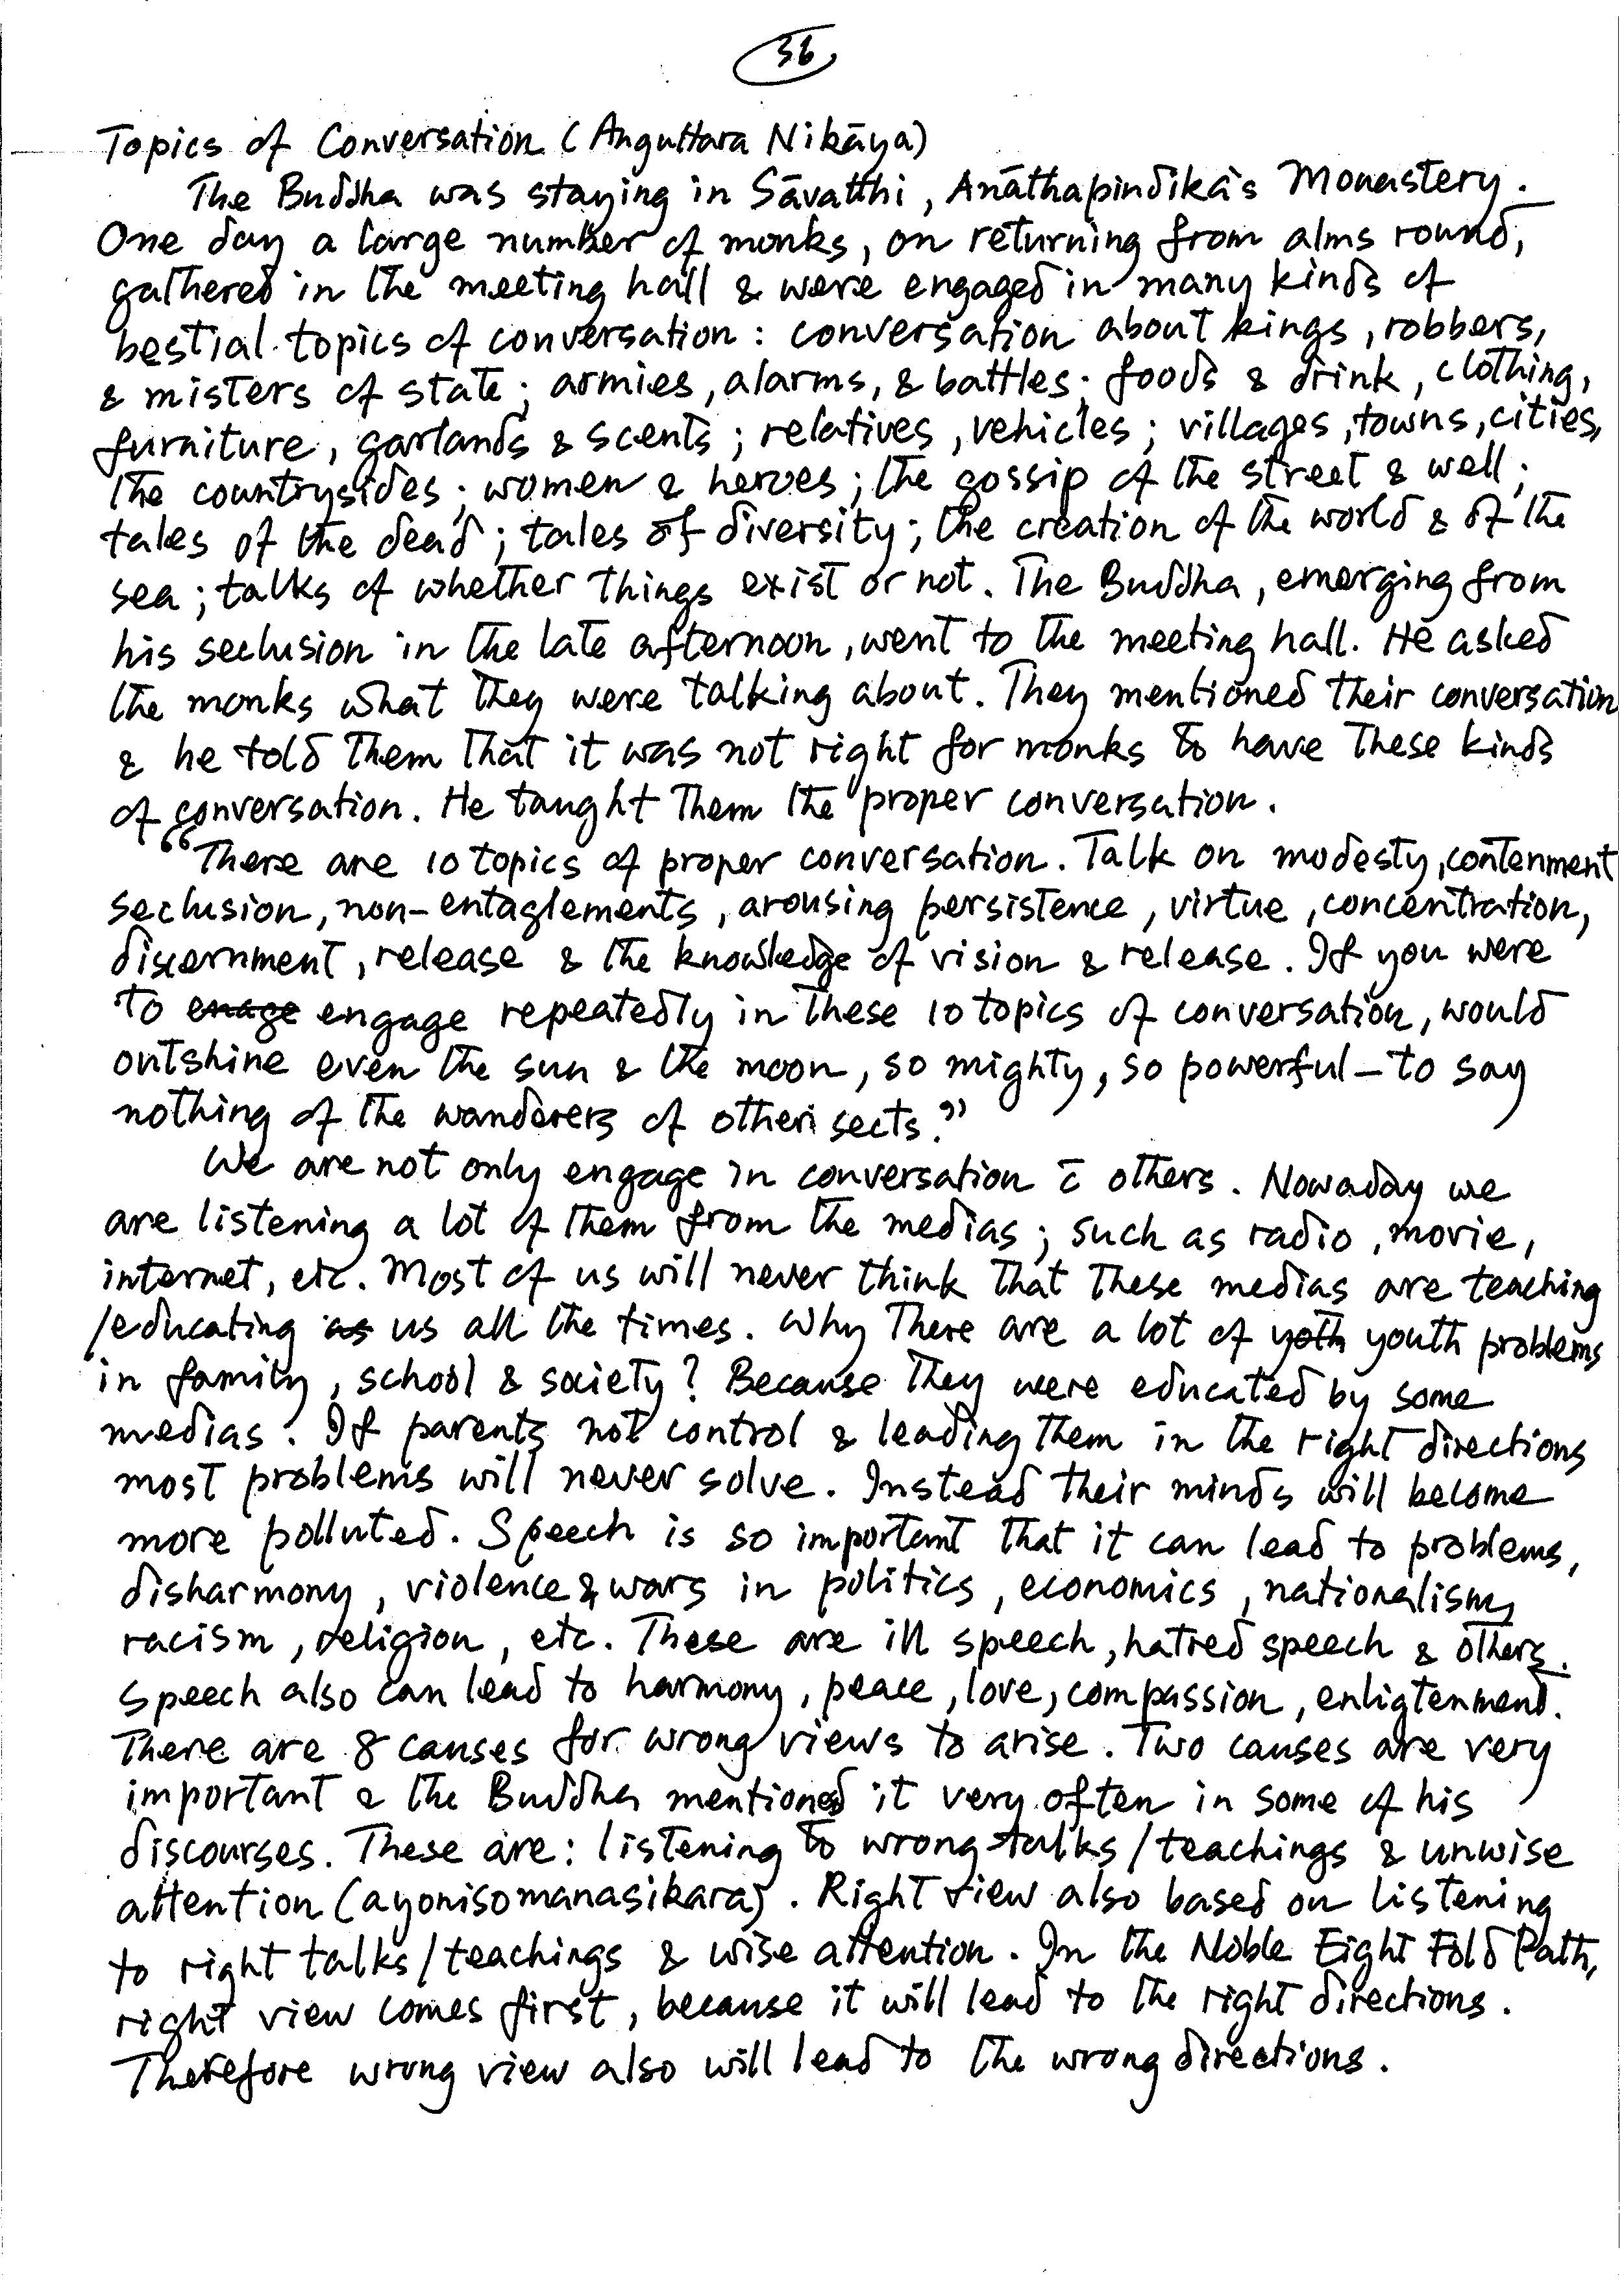 36
Topics of Conversation (Anguttara Nikāya)
The Buddha was staying in Sāvatthi, Anāthapindika's Monastery.
One day a large number of monks, on returning from alms round,
gathered in the meeting hall & were engaged in many kinds of
bestial topics of conversation : conversation about kings, robbers,
& misters of state; armies, alarms, & battles; foods & drink, clothing,
furniture, garlands & scents; relatives, vehicles; villages, towns, cities,
the countrysides; women & heroes; the gossip of the street & well;
tales of the dead; tales of diversity; the creation of the world & of the
sea; talks of whether things exist or not. The Buddha, emerging from
his seclusion in the late afternoon, went to the meeting hall. He asked
the monks what they were talking about. They mentioned their conversation
& he told them that it was not right for monks to have these kinds
of conversation. He taught them the proper conversation.
“There are 10 topics of proper conversation. Talk on modesty, contenment
seclusion, non-entaglements, arousing persistence, virtue, concentration,
discernment, release & the knowledge of vision & release. If you were
to enage engage repeatedly in these 10 topics of conversation, would
outshine even the sun & the moon, so mighty, so powerful – to say
nothing of the wanderers of other sects.”
We are not only engage in conversation c̄ others. Nowaday we
are listening a lot of them from the medias; such as radio, movie,
internet, etc. Most of us will never think that these medias are teaching
/educating as us all the times. Why there are a lot of yoth youth problems
in family, school & society? Because they were educated by some
medias. If parents not control & leading them in the right directions
most problems will never solve. Instead their minds will become
more polluted. Speech is so important that it can lead to problems,
disharmony, violence & wars in politics, economics, nationalism,
racism, religion, etc. These are ill speech, hatred speech & others.
Speech also can lead to harmony, peace, love, compassion, enligtenment.
There are 8 causes for wrong views to arise. Two causes are very
important & the Buddha mentioned it very often in some of his
discourses. These are: listening to wrong talks/teachings & unwise
attention (ayonisomanasikara). Right view also based on listening
to right talks/teachings & wise attention. In the Noble Eight Fold Path,
right view comes first, because it will lead to the right directions.
Therefore wrong view also will lead to the wrong directions.